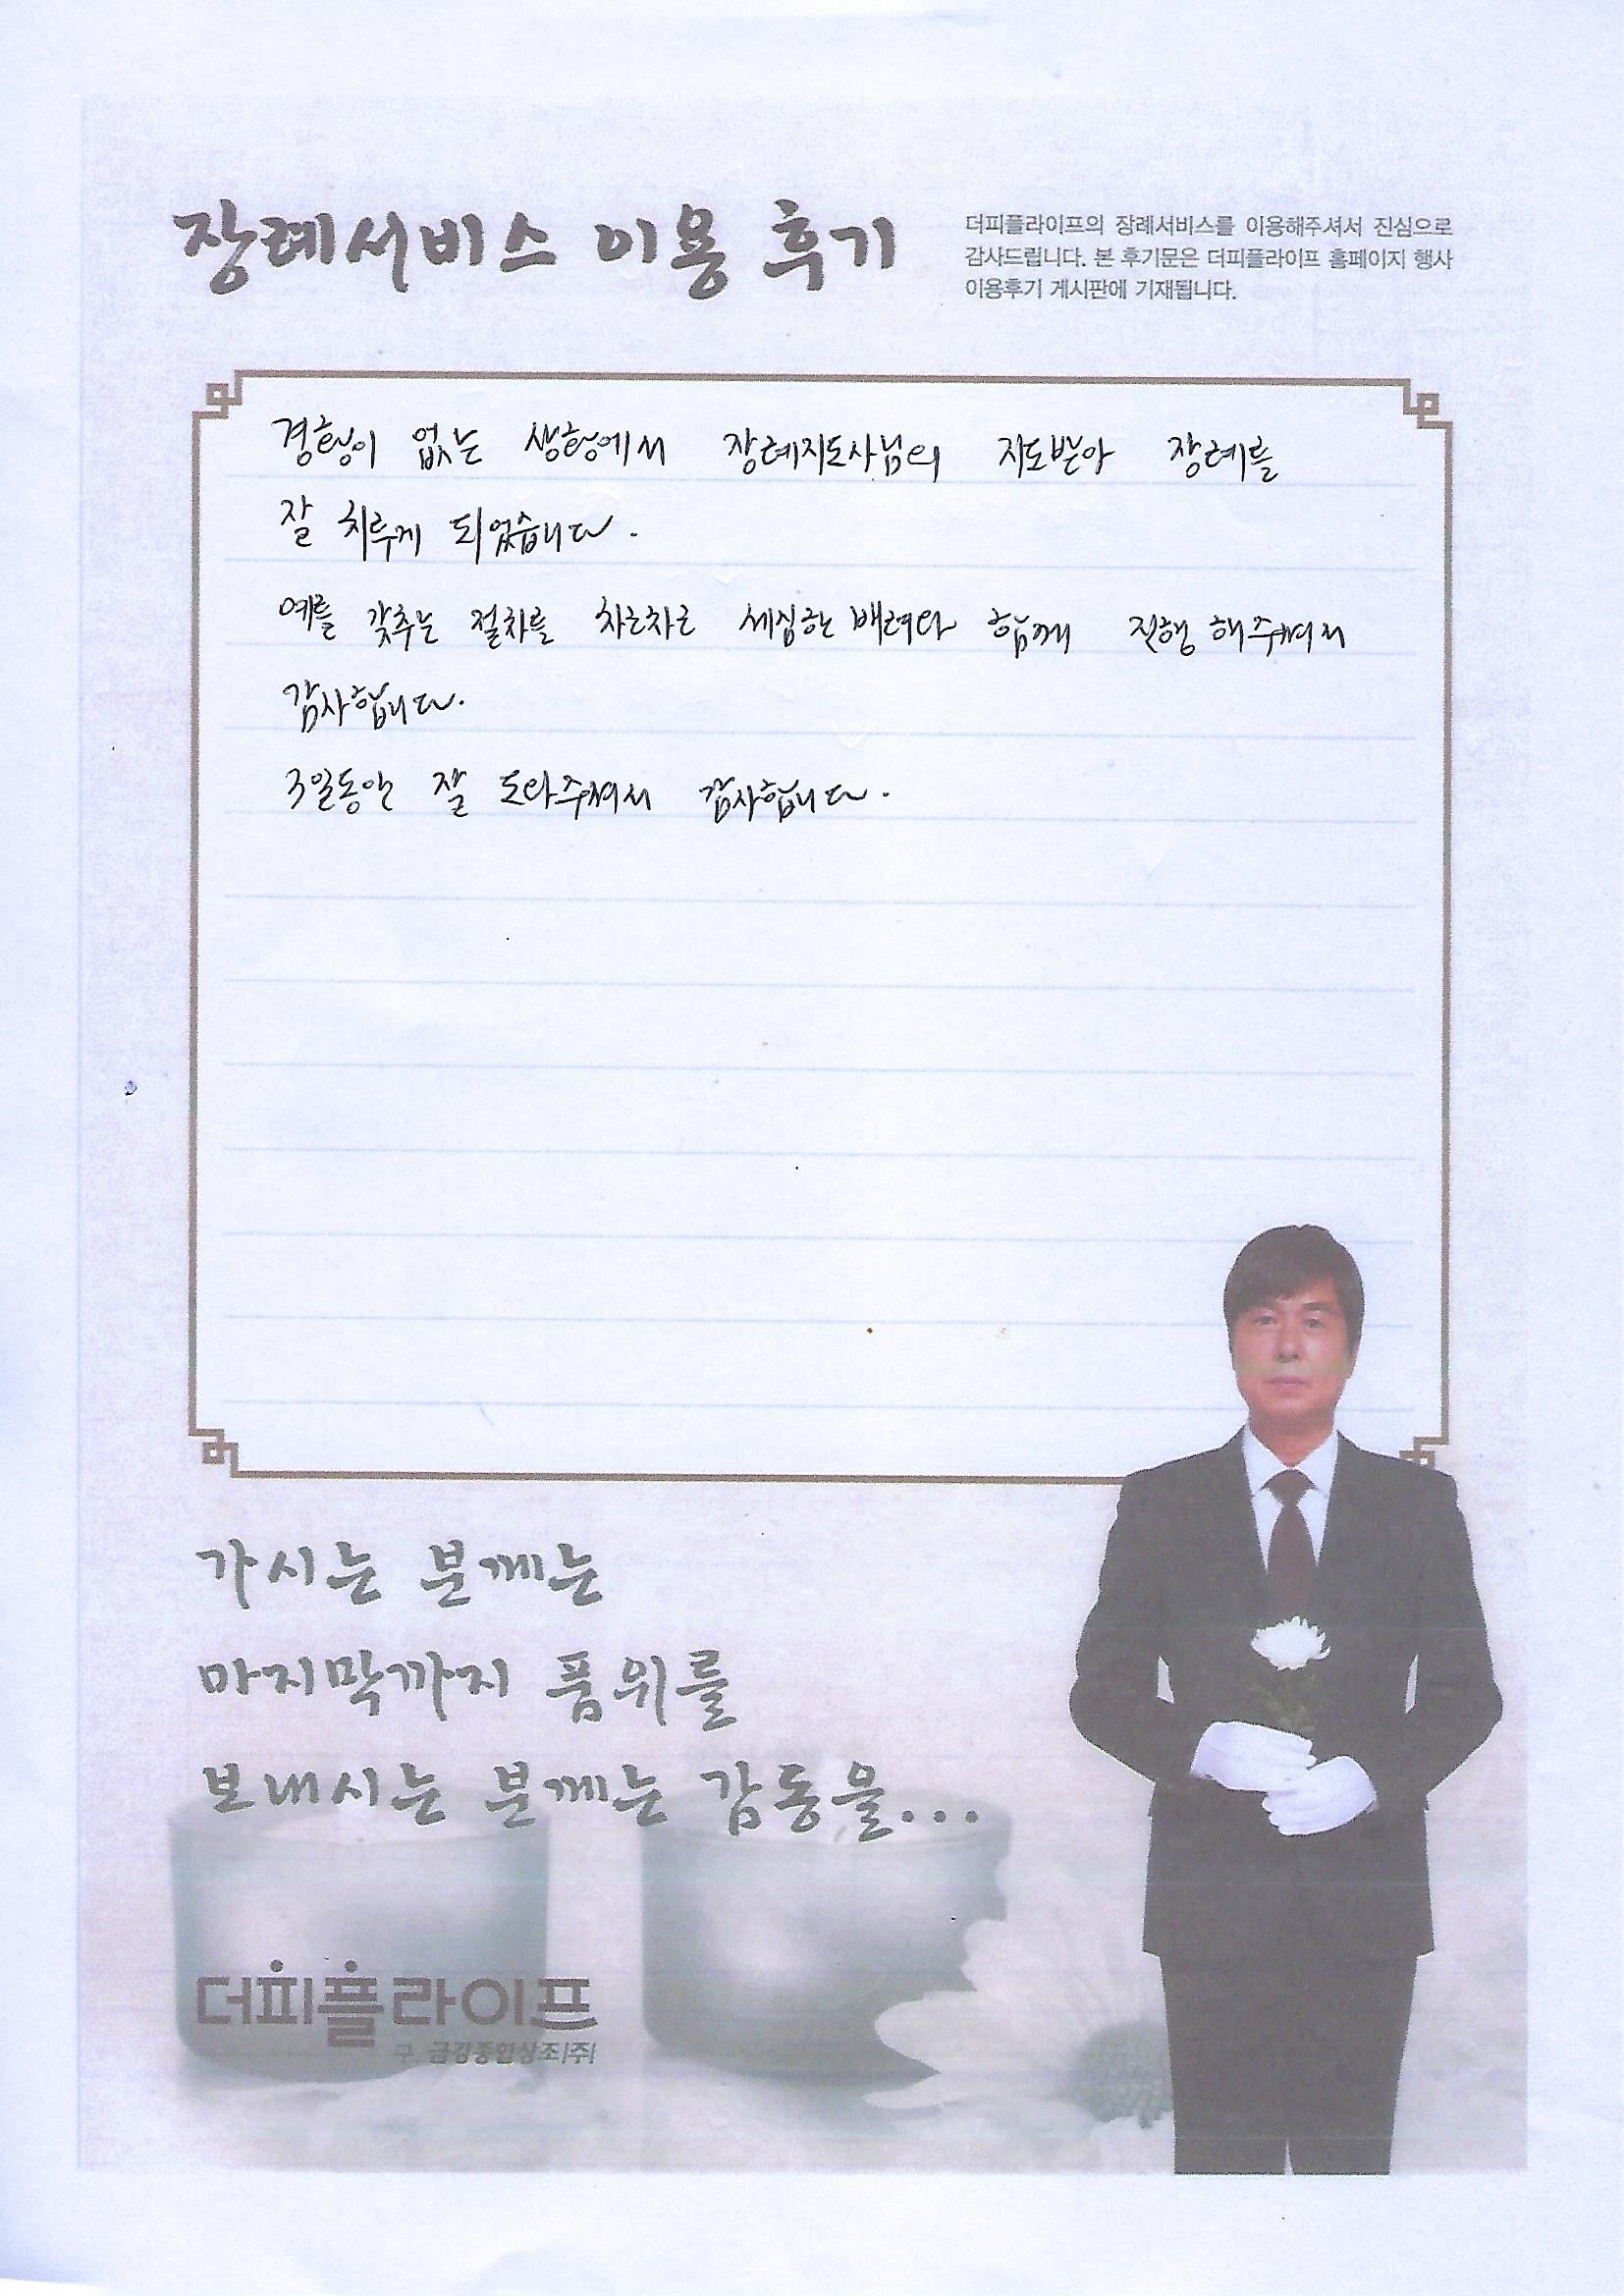 장례서비스 이용 후기
더피플라이프의 장례서비스를 이용해주셔서 진심으로
감사드립니다. 본 후기문은 더피플라이프 홈페이지 행사
이용후기 게시판에 기재됩니다.
경험이 없는 상황에서 장례지도사님의 지도받아 장례를
잘 치루게 되었습니다.
예를 갖추는 절차를 차근차근 세심한 배려와 함께 진행 해주셔서
감사합니다.
3일동안 잘 도와주셔서 감사합니다.
가시는 분께는
마지막까지 품위를
보내시는 분께는 감동을...
더피플라이프
구. 금강종합상조(주)